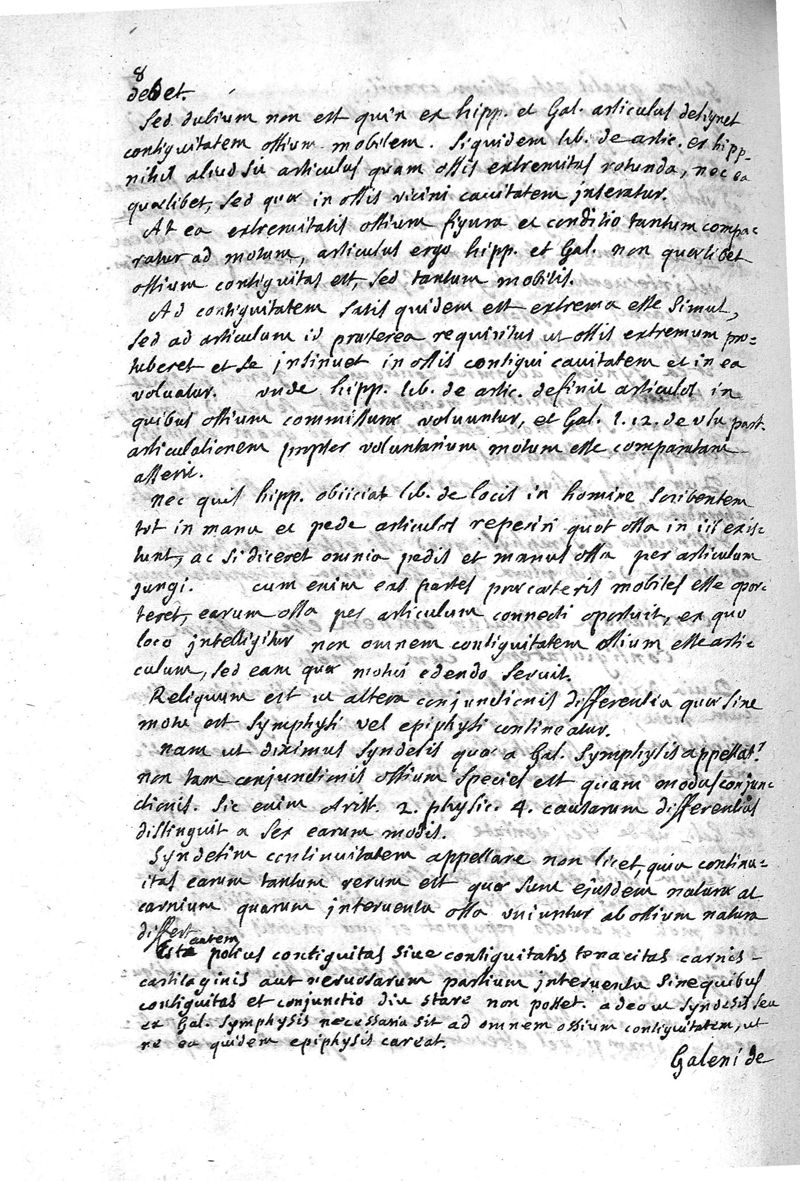 8
debet.
Sed dubium non est quin ex hipp. et Gal. articulus designet
contiguitatem ossium mobilem. Siquidem lib. de artic. ex hipp.
nihil aliud sit articulus quam ossis extremitas rotunda, nec ea
quaelibet, sed quae in ossis vicini cavitatem inseratur.
At ea extremitatis ossium figura et conditio tantum compa=
ratur ad motum, articulus ergo hipp. et Gal. non quaelibet
ossium contiguitas est, sed tantum mobilis.
Ad contiguitatem satis quidem est extrema esse simul,
sed ad articulum id praeterea requiritur ut ossis extremum pro=
tuberet et se insinuet in ossis contigui cavitatem et in ea
volvatur. unde hipp. lib. de artic. definit articulos in
quibus ossium commissurae volvuntur, et Gal. l. 12. de usu part.
articulationem propter voluntarium motum esse comparatam
asserit.
Nec quis hipp. obiiciat lib. de locis in homine scribentem
tot in manu et pede articulos reperiri quot ossa in iis exis=
tunt, ac si diceret omnia pedis et manus ossa per articulum
jungi. cum enim eas partes prae caeteris mobiles esse opor=
teret, earum ossa per articulum connecti oportuit, ex quo
loco intelligitur non omnem contiguitatem ossium esse arti=
culum, sed eam quae motui edendo servit.
Reliquum est ut altera conjunctionis differentia quae sine
motu est symphysi vel epiphysi contineatur.
nam ut diximus syndesis quae a Gal. symphysis appellat.
non tam conjunctionis ossium species est quam modus conjun=
ctionis. Sic enim Arist. 2. physic. 4. causarum differentias
distinguit a sex earum modis.
Syndesim continuitatem appellare non licet, quia continu=
itas earum tantum rerum est quae sunt ejusdem naturae at
carnium quarum interventu ossa uniuntur ab ossium natura
differt.
Est autem potius contiguitas sive contiguitatis tenacitas carnis
cartilaginis aut nervosarum partium interventu sine quibus
contiguitas et conjunctio diu stare non posset. adeo ut syndesis seu
ex Gal. symphysis necessaria sit ad omnem ossium contiguitatem, ut
ne ea quidem epiphysis careat.
Galeni de